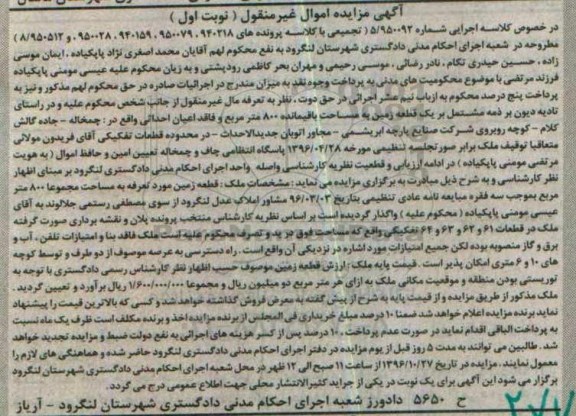 آگهی مزایده اموال غیرمنقول ( نوبت اول )
در خصوص کلاسه اجرایی شماره ۵/۹۵۰۰۹۲ ( تجمیعی با کلاسه پرونده های ۹۴۰۲۱۸ ، ۹۵۰۰۷۹ ، ۹۴۰۱۵۹ ، ۹۵۰۰۲۸ و ۸/۹۵۰۵۱۲ )
مطروحه در شعبه اجرای احکام مدنی دادگستری شهرستان لنگرود به نفع محکوم لهم آقایان محمد اصغری نژاد پاپکیاده ، ایمان موسی
زاده ، حسین حیدری تکام ، نادر رضائی ، موسی رحیمی و مهران بحر کاظمی رودپشتی و به زیان محکوم علیه عیسی مومنی پاپکیاده
فرزند مرتضی با موضوع محکومیت های مدنی به پرداخت وجوه نقد به میزان مندرج در اجرائیات صادره در حق محکوم لهم مذکور و نیز به
پرداخت پنج درصد محکوم به ازباب نیم عشر اجرائی در حق دولت ، نظر به تعرفه مال غیرمنقول از جانب شخص محکوم علیه و در راستای
تادیه دیون بر ذمه مشتمل بر یک قطعه زمین به مساحت باقیمانده ۸۰۰ متر مربع و فاقد اعیان احداثی واقع در : چمخاله - جاده گالش
کلام - کوچه روبروی شرکت صنایع پارچه ابریشمی - مجاور اتوبان جدیدالاحداث - در محدوده قطعات تفکیکی آقای فریدون مولائی
متعاقبا توقیف ملک برابر صورتجلسه تنظیمی مورخه ۱۳۹۶/۰۲/۲۸ پاسگاه انتظامی چاف و چمخاله تعیین امین و حافظ اموال ( به هویت
مرتضی مومنی پاپکیاده ) در ادامه ارزیابی و قطعیت نظریه کارشناسی واصله واحد اجرای احکام مدنی دادگستری لنگرود بر مبنای اظهار
نظر کارشناسی و به شرح ذیل مبادرت به برگزاری مزایده می نماید : مشخصات ملک : قطعه زمین مورد تعرفه به مساحت مجموعا ۸۰۰ متر
مربع بموجب سه فقره مبایعه نامه عادی تنظیمی بتاریخ ۹۶/۰۳/۰۳ مشاور املاک عدل لنگرود از سوی مصطفی رستمی جلالوند به آقای
عیسی مومنی پاپکیاده ( محکوم علیه ) واگذار گردیده است بر اساس نظریه کارشناس منتخب پرونده پلان و نقشه برداری صورت گرفته
ملک در قطعات ۶۱ و ۶۲ و ۶۳ و ۶۴ تفکیکی واقع که مساحت فوق در ید و تصرف محکوم علیه است ملک فاقد بنا و امتیازات تلفن ، آب و
برق و گاز منصوبه بوده لکن جمیع امتیازات مورد اشاره در نزدیکی آن واقع است . راه دسترسی به عرصه موصوف از دو طرف و توسط کوچه
های ۱۰ و ۶ متری امکان پذیر است . قیمت پایه ملک : ارزش قطعه زمین موصوف حسب اظهار نظر کارشناس رسمی دادگستری با توجه به
توریستی بودن منطقه و موقعیت مکانی ملک به ازای هر متر مربع دو میلیون ریال و مجموعا ۱/۶۰۰/۰۰۰/۰۰۰ ریال برآورد و تعیین گردید .
ملک مذکور از طریق مزایده و از قیمت پایه به شرح از پیش گفته به معرض فروش گذاشته خواهد شد و کسی که بالاترین قیمت را پیشنهاد
نماید برنده مزایده اعلام خواهد شد ضمنا ۱۰ درصد مبلغ خریداری فی المجلس از برنده مزایده اخذ و برنده مکلف است ظرف یک ماه نسبت
به پرداخت الباقی اقدام نماید در صورت عدم پرداخت ، ۱۰ درصد پس از کسر هزینه های اجرائی به نفع دولت ضبط و مزایده تجدید خواهد
شد . طالبین می توانند به مدت ۵ روز قبل از یوم مزایده در دفتر اجرای احکام مدنی دادگستری لنگرود حاضر شده و هماهنگی های لازم را
معمول نمایند . مزایده در تاریخ ۱۳۹۶/۱۰/۲۷ از ساعت ۱۱ صبح الی ۱۲ ظهر در محل شعبه اجرای احکام مدنی دادگستری شهرستان لنگرود
برگزار می شود این آگهی برای یک نوبت در یکی از جراید کثیرالانتشار محلی جهت اطلاع عمومی درج می گردد .
ح ۵۶۵۰ دادورز شعبه اجرای احکام مدنی دادگستری شهرستان لنگرود - آریاز